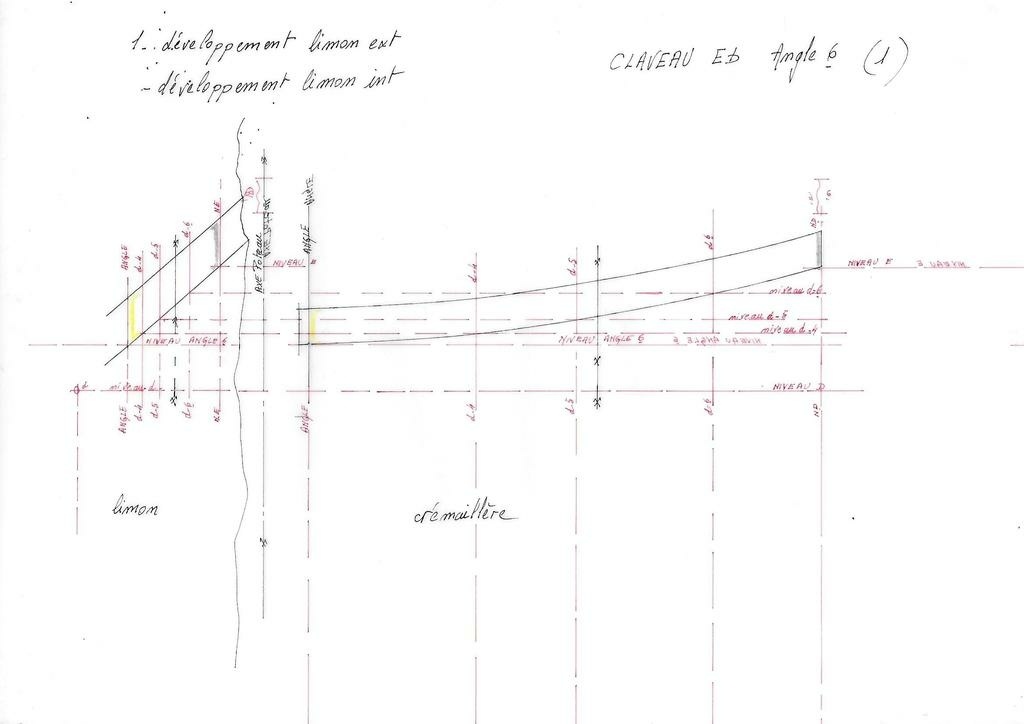 1-. développement limon ext
- développement limon int
CLAVEAU ED Angle 6 (1)
ANGLE
d-4
d-5
d-6
NE
AXE Poteau
ANGLE
d-4
d-5
d-6
NIVEAU E
NIVEAU E
niveau d-6
niveau d-5
niveau d-4
NIVEAU ANGLE 6
NIVEAU ANGLE 6
NIVEAU ANGLE 6
d
niveau d
NIVEAU D
ANGLE
d-4
d-5
d-6
NE
ANGLE
d-4
d-5
d-6
limon
crémaillère